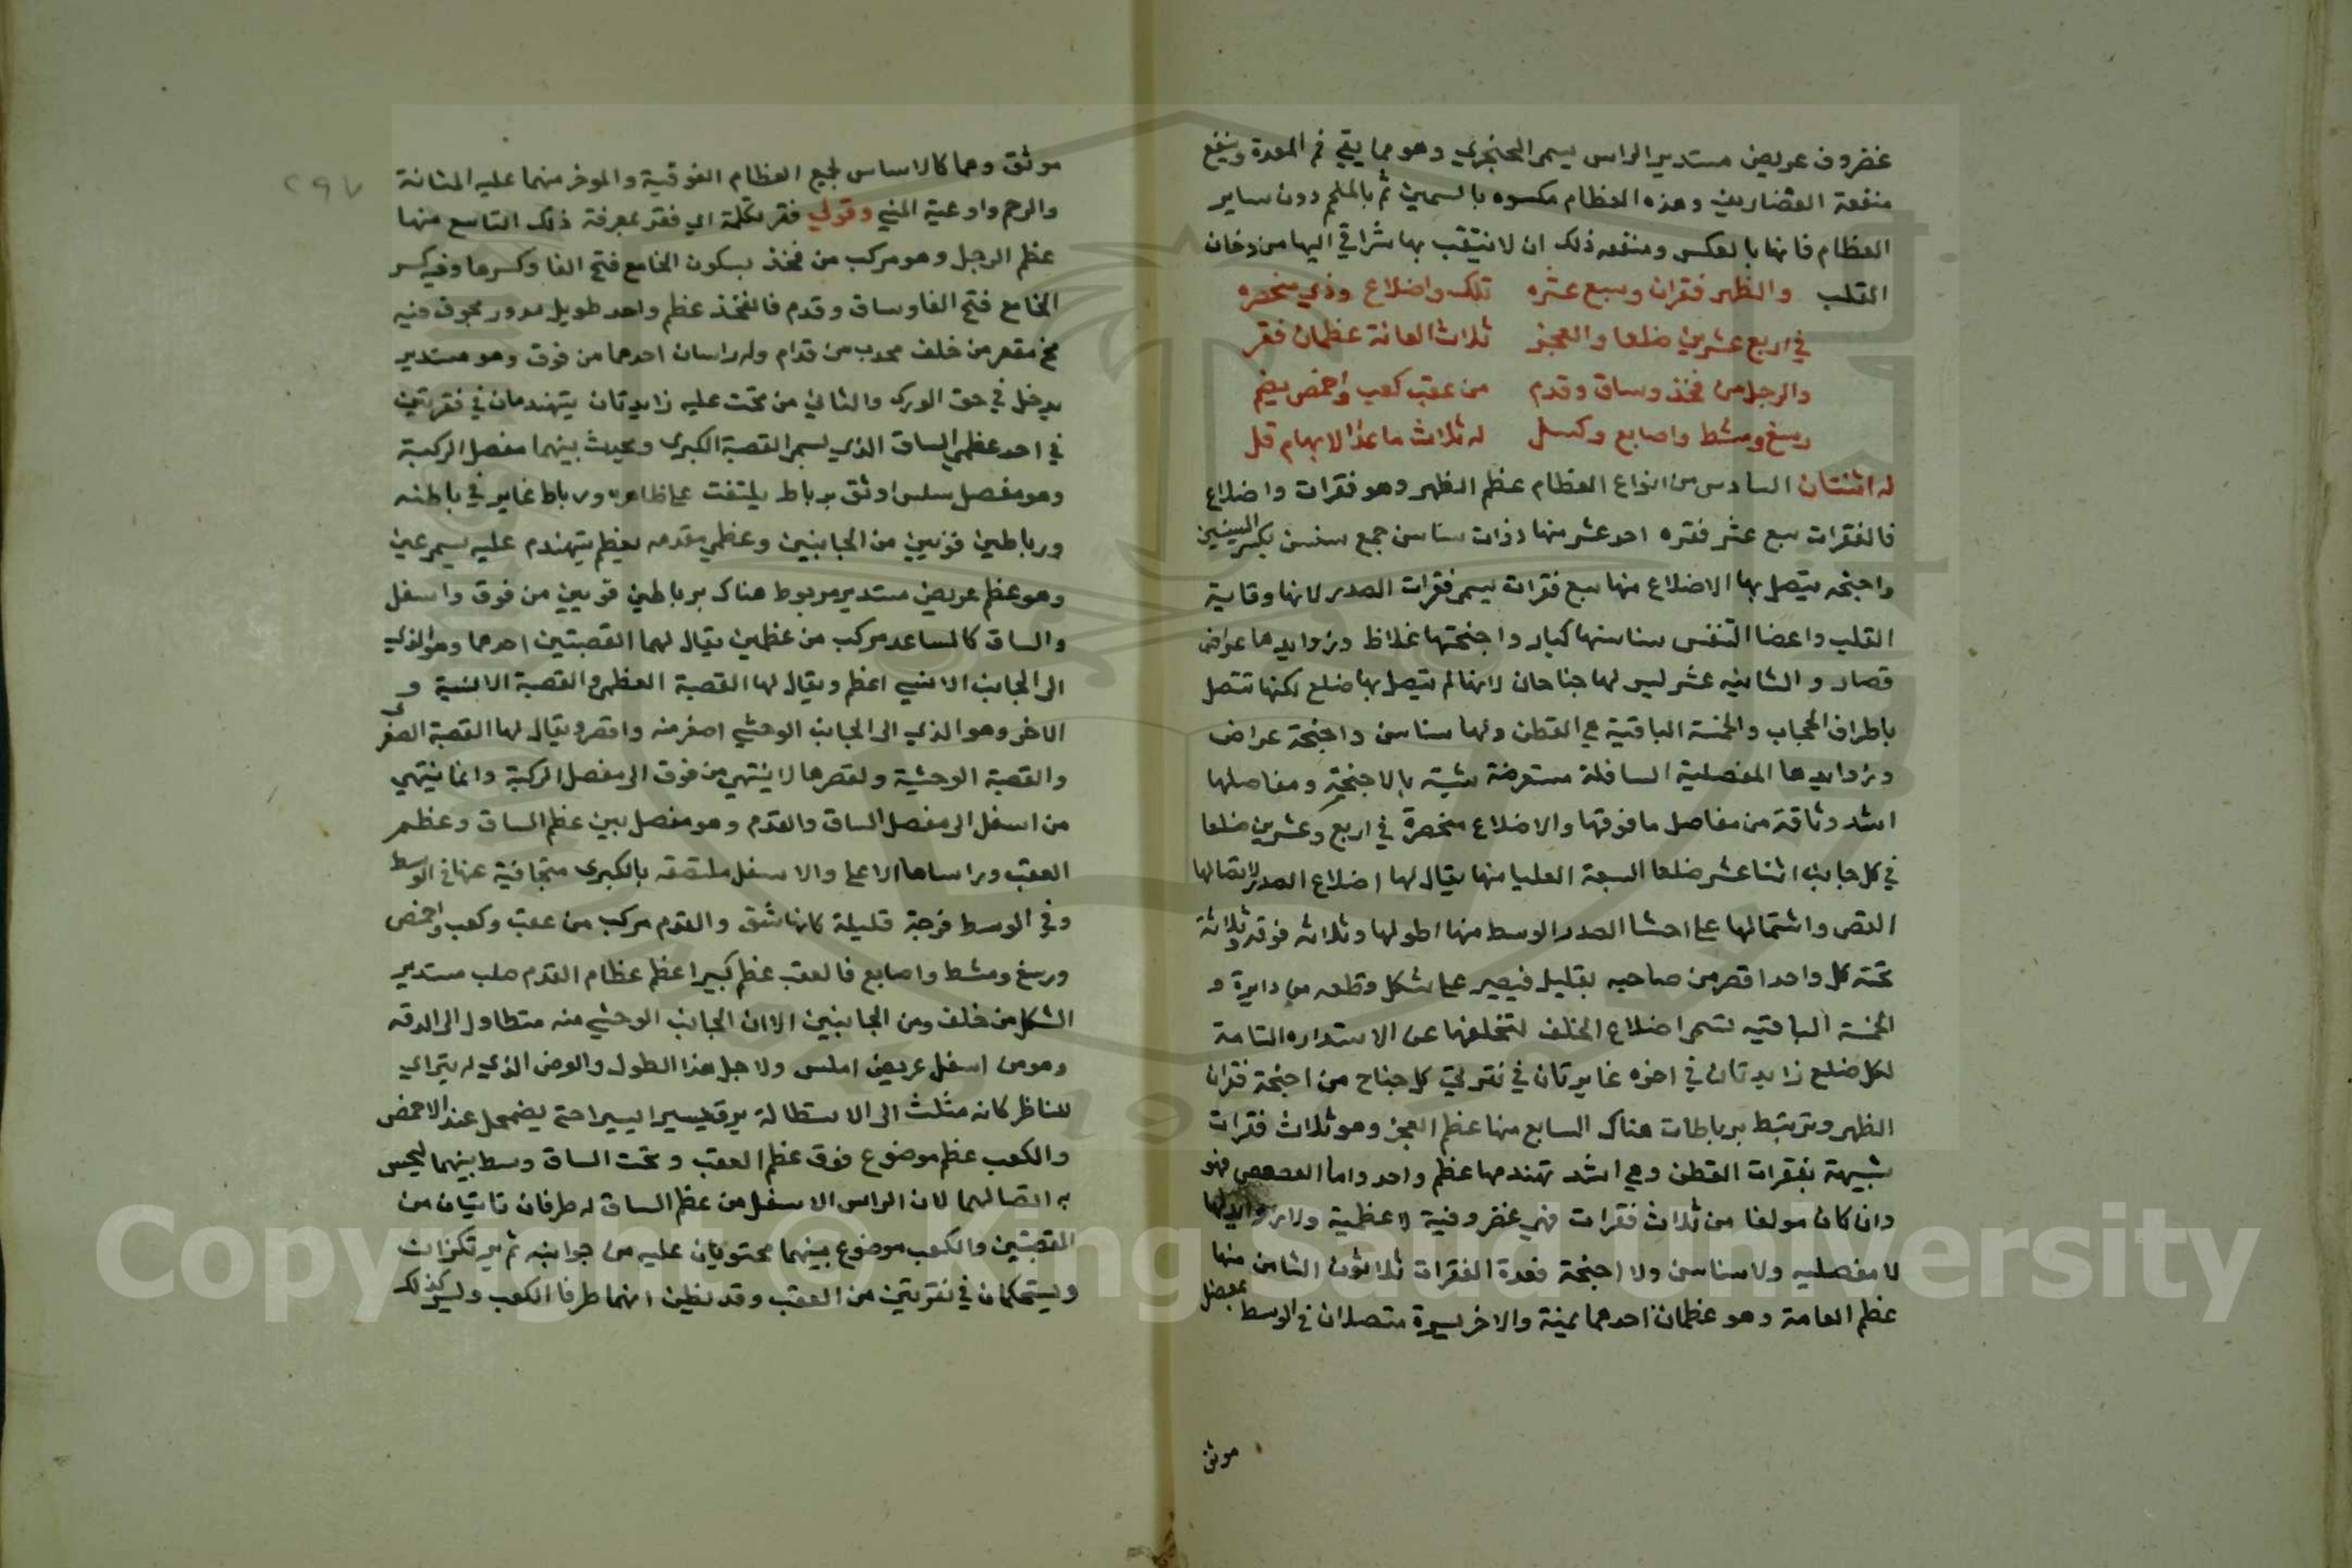 غضروف عريض مستدير الراس يسمى الحنجري وهو مما يقي فم المعدة وينفع
منفعة الغضاريف وهذه العظام مكسوه بالسمين ثم بالملحم دون ساير
العظام فانها بالعكس ومنفعه ذلك ان لا يتقب بها شراقي اليها من دخان
القلب والظهر فقران وسبع عشره تلك واضلاع وذي منحصره
في اربع عشرين ضلعا والعجز ثلاث العانة عظمان فقر
والرجل من فخذ وساق وقدم من عقب كعب واخمص يضم
رسغ ومشط واصابع وكسل له ثلاث ماعدا الابهام قل
له اثنتان السادس من انواع العظام عظم الظهر وهو فقرات واضلاع
فالفقرات سبع عشر فقره احد عشر منها ذوات سناسن جمع سنسن بكسر السينين
واجنحه يتصل بها الاضلاع منها سبع فقرات يسمى فقرات الصدر لانها وقاية
القلب واعضا التنفس سناسنها كبار واجنحتها غلاظ وزوايدها عراض
قصار والثانيه عشر ليس لها جناحان لانها لم يتصل بها ضلع لكنها تتصل
باطراف الحجاب والخمسة الباقية هي القطن ولها سناسن واجنحة عراض
وزوايدها المفصلية السافلة مستعرضة شبية بالاجنحة ومفاصلها
اشد وثاقة من مفاصل ما فوقها والاضلاع منحصرة في اربع وعشرين ضلعا
في كل جانب اثنا عشر ضلعا السبعة العليا منها يقال لها اضلاع الصدر لاتصالها
القص واشتمالها على احشا الصدر الوسط منها اطولها وثلاثه فوقه وثلاثة
تحته كل واحد اقصر من صاحبه بقليل فيصير على شكل وقطعه من دايرة و
الخمسة الباقيه تسمى اضلاع الخلف لتخلفها عن الاستداره التامة
لكل ضلع زايدتان في اخره غايرتان في نقرتي كل جناح من اجنحة فقران
الظهر وتربتبط برباطات هناك السابع منها عظم العجز وهو ثلاث فقرات
شبيهة بفقرات القطن وهي اشد تهندمها عظم واحد واما العصعص فهو
وان كان مولفا من ثلاث فقرات فهي غضروفية لا عظمية ولا زوايد لها
لا مفصليه ولا سناسن ولا اجنحة فعدة الفقرات ثلاثون الثامن منها
عظم العامة وهو عظمان احدهما يمنة والاخر يسرة متصلان في الوسط بمفصل
موثق
٢٩٧
موثق وهما كالاساس لجميع العظام الفوقية والموخر منهما عليه المثانة
والرحم واوعية المني وقولي فقر تكملة اي فقر بمعرفة ذلك التاسع منها
عظم الرجل وهو مركب من فخذ بسكون الخا مع فتح الفا وكسرها وفيه كسر
الخا مع فتح الفا وساق وقدم فالفخذ عظم واحد طويل مدور مجوف فيه
مخ مقعر من خلف محدب من قدام وله راسان احدهما من فوق وهو مستدير
يدخل في حق الورك والثاني من تحت عليه زايدتان يتهندمان في نقرتين
في احد عظمي الساق الذي يسمى القصبة الكبرى ويحيث بينهما مفصل الركبة
وهو مفصل سلس اوثق برباط يلتفت على ظاهره ورباط غاير في باطنه
ورباطين قويين من الجانبين وعظمي مقدمه بعظم يتهندم عليه يسمى عين
وهو عظم عريض مستدير مربوط هناك برباطين قويين من فوق واسفل
والساق كالساعد مركب من عظمين يقال لهما القصبتين احدهما وهو الذي
الى الجانب الانسي اعظم ويقال لها القصبة العظمى والقصبة الانسية و
الاخر وهو الذي الى الجانب الوحشي اصغر منه واقصر ويقال لها القصبة الصغرى
والقصبة الوحشية ولقصرها لا ينتهي من فوق الى مفصل الركبة وانما ينتهي
من اسفل الى مفصل الساق والقدم وهو مفصل بين عظم الساق وعظم
العقب وراساها الاعلى والاسفل ملتصقه بالكبرى متجافية عنها في الوسط
وفي الوسط فرجة قليلة كانها شق والقدم مركب من عقب وكعب واخمص
ورسغ ومشط واصابع فالعقب عظم كبير اعظم عظام القدم صلب مستدير
الشكل من خلف ومن الجانبين الا ان الجانب الوحشي منه متطاول الى الدقه
وهو من اسفل عريض املس ولاجل هذا الطول والعرض الذي له يتراي
للناظر كانه مثلث الى الاستطالة يرق يسيرا يسيرا حتى يضمحل عند الاخمص
والكعب عظم موضوع فوق عظم العقب وتحت الساق وسط بينهما ليحس
به اتصالهما لان الراس الاسفل من عظم الساق له طرفان ناتيان من
القصبتين والكعب موضوع بينهما محتويان عليه من جوانبه ثم يرتكزان
ويستحكمان في نقرتين من العقب وقد يظن انهما طرفا الكعب وليس كذلك
Copyright © King Saud University